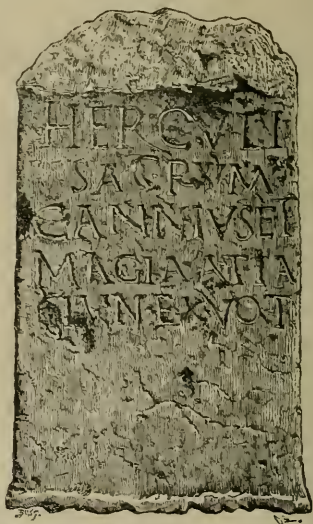 HERCVLI
SACRVM
CANNIVS ET
MAGIA ATIA
EX VOT